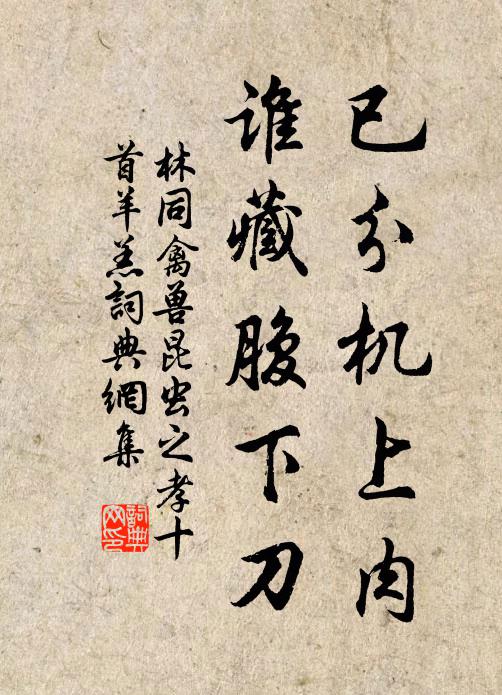 已分机上肉
谁藏腹下刀
林同禽兽昆虫之孝十
首羊羔詞典網集
詞典
网印